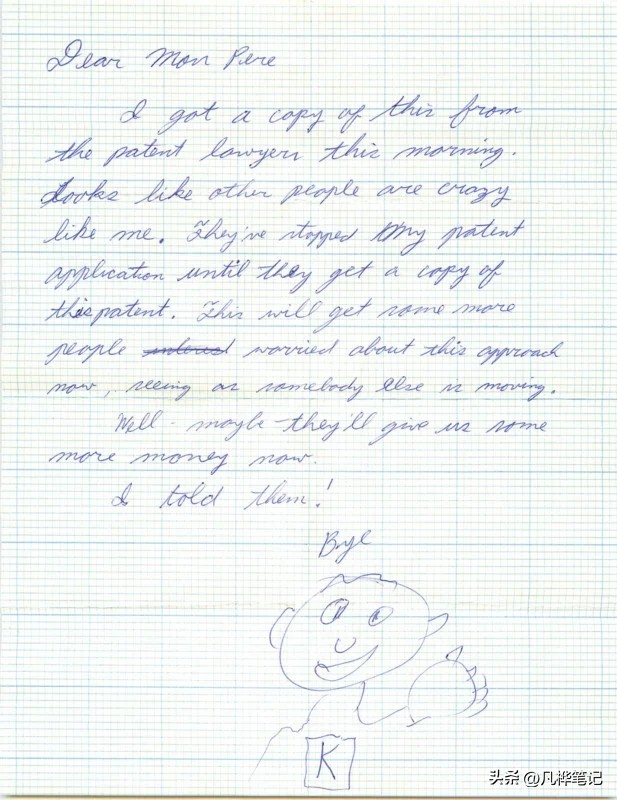 Dear Mon Pere
I got a copy of this from
the patent lawyers this morning.
Looks like other people are crazy
like me. They've stopped My patent
application until they get a copy of
this patent. This will get some more
people worried about this approach
now, seeing as somebody else is moving.
Well - maybe they'll give us some
more money now.
I told them!
K
头条 @凡桦笔记